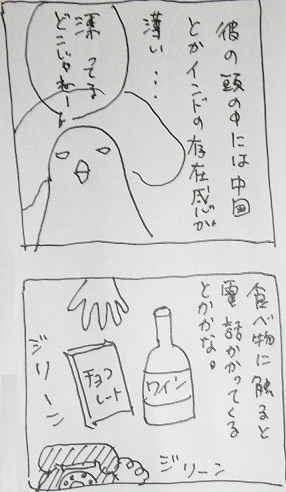 彼の頭の中には中国
とかインドの存在感が
薄い…
漂ってる
どこじゃねーよ
食べ物に触ると
電話かかってくる
とかかな。
ジリーン
チョコ
レート
ワイン
ジリーン